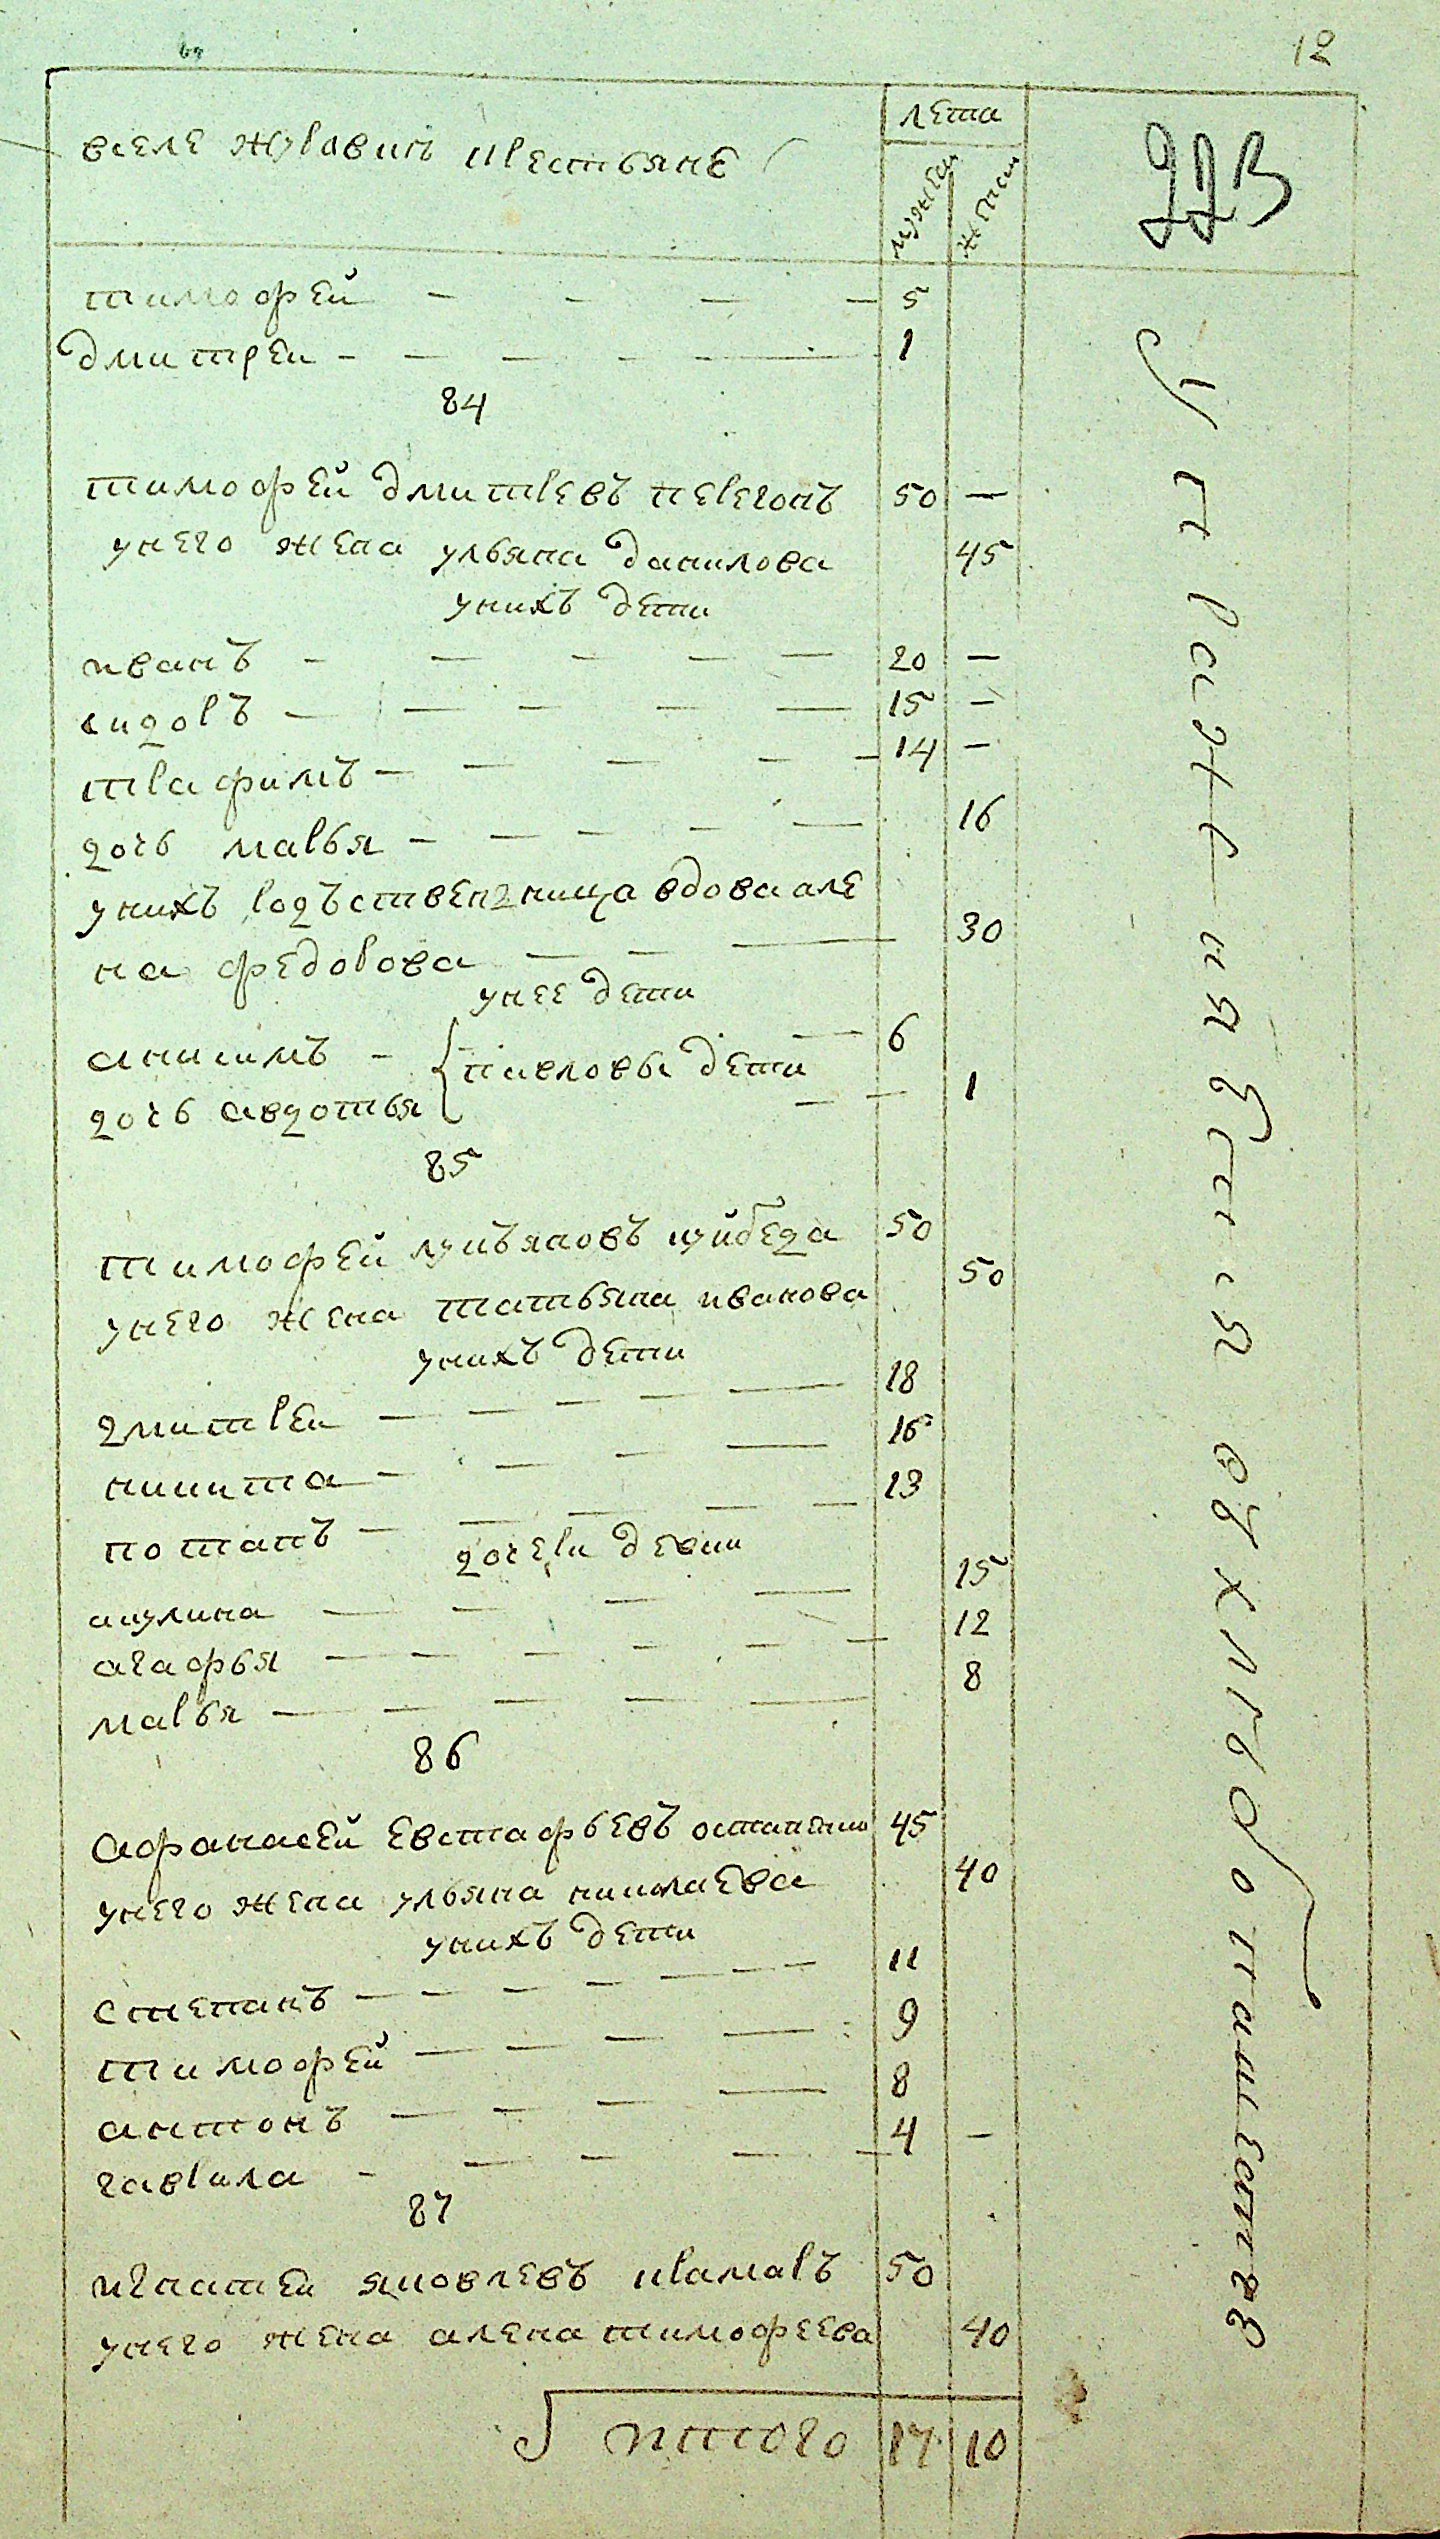 12
вселе журавки крестьяне
лета
мужеск
женск
223
тимофей 5
дмитреи 1
84
тимофей дмитревъ перегонъ 50 —
унего жена ульяна данилова 45
унихъ дети
иванъ 20 —
сидоръ 15 —
трафимъ 14 —
дочь марья 16
унихъ родъственница вдова але
на федорова 30
унее дети
анисимъ { павловы дети 6
дочь авдотья 1
85
тимофей лукъяновъ 50
унего жена татьяна иванова 50
унихъ дети
дмитреи 18
никита 16
потапъ 13
дочери девки
акулина 15
агафья 12
марья 8
86
афанасей евстафьевъ остапенко 45
унего жена ульяна николаева 40
унихъ дети
степанъ 11
тимофей 9
антонъ 8
гаврила 4 —
87
игнатеи яковлевъ крамаръ 50
унего жена алена тимофеева 40
итого 17 10